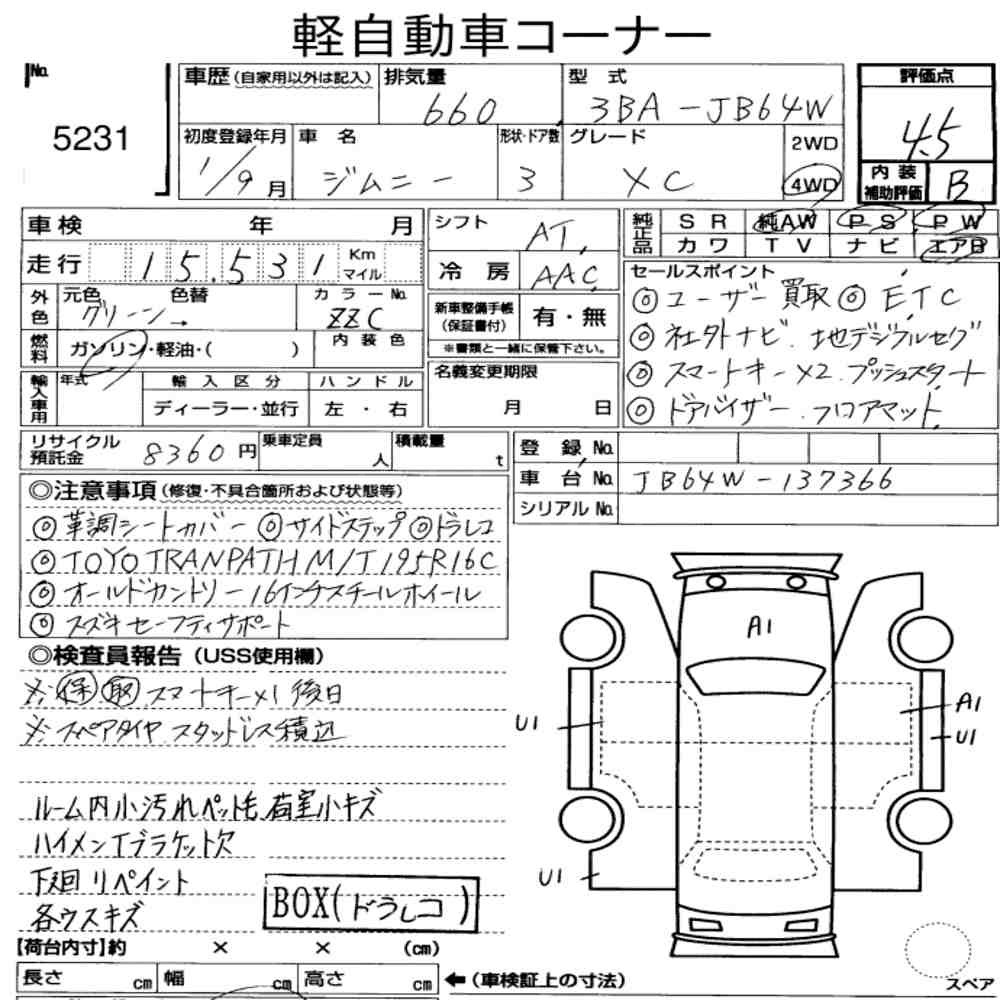 軽自動車コーナー
No. 5231
車歴(自家用以外は記入) 排気量 660 型式 3BA-JB64W 評価点 4.5
初度登録年月 1/9月 車名 ジムニー 形状・ドア数 3 グレード XC 2WD 4WD 内装補助評価 B
車検 年 月 シフト AT 純正品 SR 純AW PS PW
カワ TV ナビ エアB
走行 15.531 Km マイル 冷房 AAC セールスポイント
◎ユーザー買取 ◎ETC
外色 元色 グリーン→ 色替 カラーNo. ZZC 新車整備手帳(保証書付) 有・無
※書類と一緒に保管下さい。
◎社外ナビ.地デジフルセグ
燃料 ガソリン・軽油・( ) 内装色
◎スマートキーX2.プッシュスタート
輸入車用 年式 輸入区分 ハンドル 名義変更期限
ディーラー・並行 左・右 月 日
◎ドアバイザー.フロアマット
リサイクル預託金 8360円 乗車定員 人 積載量 t
登録No.
車台No. JB64W-137366
シリアルNo.
◎注意事項(修復・不具合箇所および状態等)
◎革調シートカバー ◎サイドステップ ◎ドラレコ
◎TOYO TRANPATH M/T 195R16C
◎オールドカントリー16インチスチールホイール
◎スズキセーフティサポート
◎検査員報告(USS使用欄)
※保 取 スマートキーX1後日
※スペアタイヤ.スタッドレス積込
ルーム内小汚れペット毛 荷室小キズ
ハイメンTブラケット欠
下廻リペイント
各ウスキズ
BOX(ドラレコ)
A1
U1
A1
U1
U1
【荷台内寸】約 × × (cm)
長さ cm 幅 cm 高さ cm ←(車検証上の寸法)
スペア